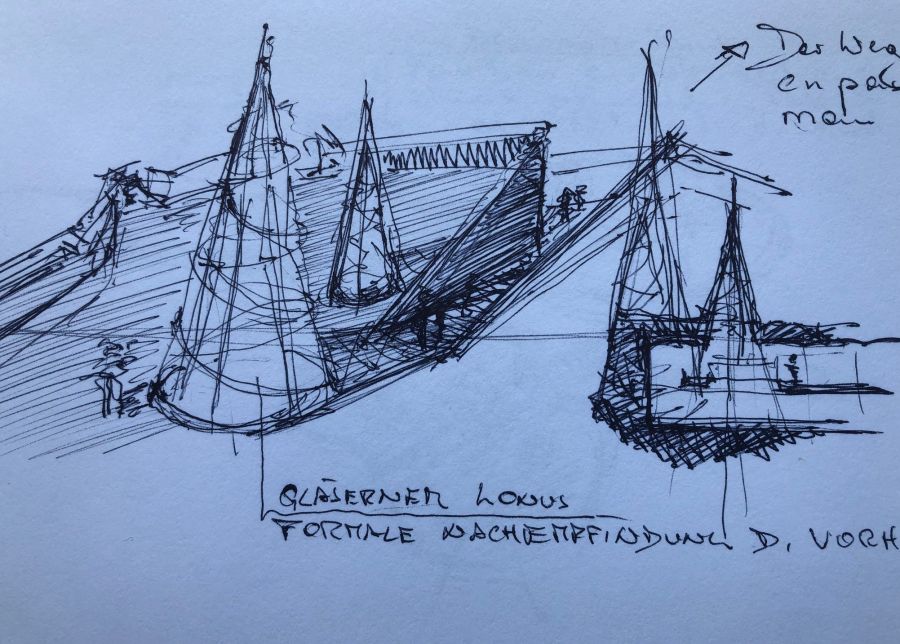 Der Weg
en pas
man
GLÄSERNER KONUS
FORMALE NACHEMPFINDUNG D. VORH